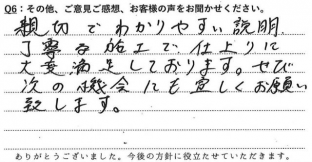 Q6：その他、ご意見ご感想、お客様の声をお聞かせください。
親切でわかりやすい説明
丁寧な施工で仕上りに
大変満足しております。ぜひ
次の機会にも宜しくお願い
致します。
ありがとうございました。今後の方針に役立たせていただきます。